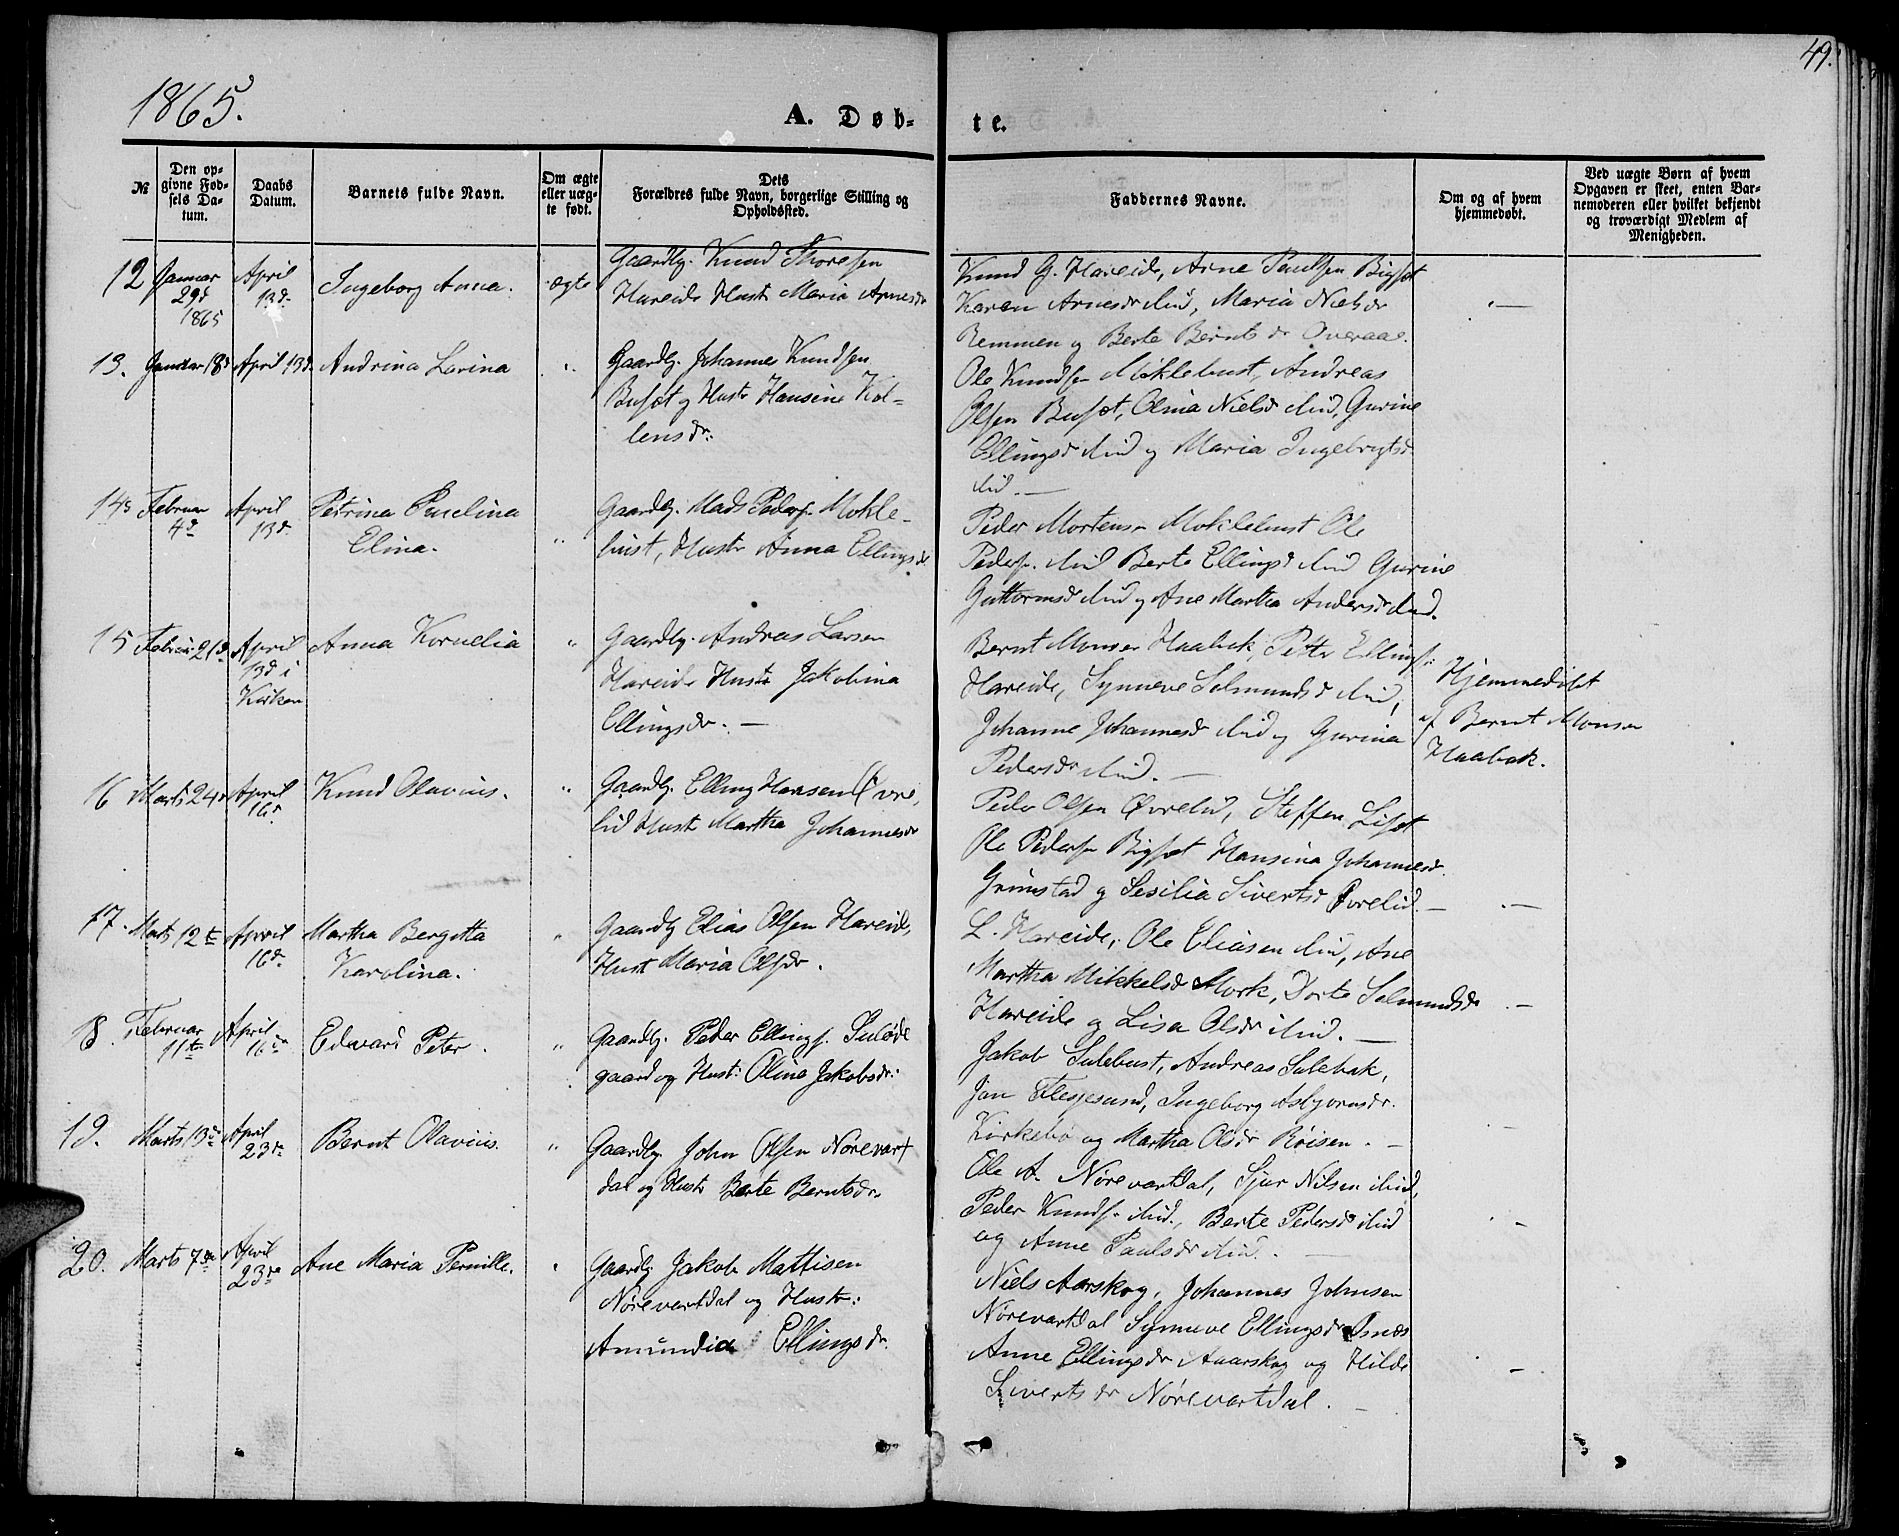 1865.
49.
A. Døb-
te.
№
Den op-
givne Fød-
sels Da-
tum.
Daabs
Datum.
Barnets fulde Navn.
Om ægte
eller uæg-
te født.
Dets
Forældres fulde Navn, borgerlige Stilling og
Opholdssted.
Faddernes Navne.
Om og af hvem
hjemmedøbt.
Ved uægte Børn af hvem
Opgaven er skeet, enten Bar-
nemoderen eller hvilket bekjendt
og troværdigt Medlem af
Menigheden.
12
Januar
29d
1865
April
13d.
Ingeborg Anna.
ægte
Gaardbg. Knud Thoresen
Hareide Hustr Maria Arnesdr
Knud G. Hareide, Arne Paulsen Bigset
Karen Arnesdr ibid, Maria Nielsdr
Remmen og Berte Berntsdr Overaae.
13.
Januar 18d
April 13d.
Andrina Lovina
"
Gaardbg. Johannes Knudsen
Busæt og Hustr Hansine Kol-
lensdr.
Ole Knudsen Moklebust, Andreas
Olsen Busæt, Olina Nielsdr ibid, Gurine
Ellingsd ibid og Maria Ingebrigtsd
ibid. —
14
Februar
4d
April
13d.
Petrina Paulina
Elina.
"
Gaardbg. Mads Peders. Mokle-
bust, Hustr Anna Ellingsdr.
Peder Mortensen Moklebust Ole
Peders. ibid Berte Ellingsd ibid Gurine
Guttormsd ibid og Ane Martha Andersdr ibid.
15
Februar 21d
April
13d i
Kirken
Anna Kornelia
"
Gaardbg. Andreas Larsen
Hareide Hustr Jakobina
Ellingsdr. —
Bernt Monsen Haabak, Petter Ellings.
Hareide, Synneve Salmundsd ibid,
Johanne Johannesdr ibid og Gurina
Pedersdr ibid. —
Hjemmedøbt
af Bernt Monsen
Haabak.
16
Marts 24d
April
16d
Knud Olavius.
"
Gaardbg. Elling Hansen Øvre-
lid Hustr Martha Johannesdr
Peder Olsen Øvrelid, Steffen Liset
Ole Pedersen Bigset Hansina Johannesd.
Grimstad og Sesilia Sivertsd Øvrelid. —
17.
Marts 12te
April
16d.
Martha Bergitta
Karolina.
"
Gaardbg Elias Olsen Hareide,
Hust Maria Olsdr.
L. Hareide, Ole Eliasen ibid, Ane
Martha Mikkelsd Mork, Dorte Salmundsdr
Hareide og Lisa Olsdr ibid. —
18.
Februar
11te
April
16de
Edvard Peter.
"
Gaardbg. Peder Ellings. Suløde
gaard og Hust: Oline Jakobsdr:
Jakob Sulebust, Andreas Sulebak,
Jan Flesjesund, Ingeborg Asbjørnsdr.
Kirkebø og Martha Olsdr Røisen. —
19.
Marts 13de
April
23de
Bernt Olavius.
"
Gaardbg John Olsen Nørevart
dal og Hustr Berte Berntsdr.
Ole A. Nørevartdal, Sjur Nilsen ibid,
Peder Knuds. ibid., Berte Pedersd ibid
og Anne Paulsdr ibid. —
20.
Marts 7de
April
23de
Ane Maria Pernille.
"
Gaardbg Jakob Mattisen
Nørevartdal og Hustr:
Amundia Ellingsdr.
Niels Aarskog, Johannes Johnsen
Nørevartdal Synneve Ellingsdr Osnæs
Anne Ellingsdr Aaarskog og Hilde
Sivertsdr Nørevartdal. —